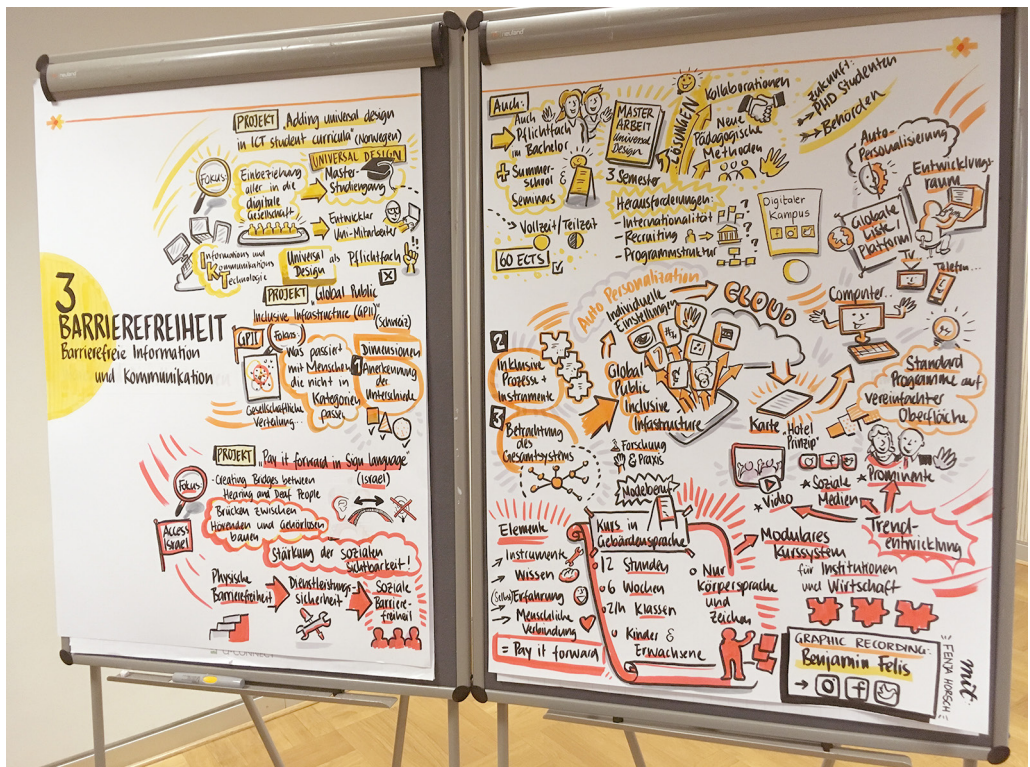 3
BARRIEREFREIHEIT
Barrierefreie Information
und Kommunikation
PROJEKT „Adding universal design
in ICT student curricula" (Norwegen)
UNIVERSAL DESIGN
FOKUS:
Einbeziehung
aller in die
digitale
Gesellschaft
Master-
Studiengang
Entwickler
Uni-Mitarbeiter
Informations und
Kommunikations
Technologie
Universal
Design
als Pflichtfach
PROJEKT „Global Public
Inclusive Infastructure (GPII)"
(Schweiz)
GPII
Fokus:
Was passiert
mit Menschen
die nicht in
Kategorien
passen
Gesellschaftliche
Verteilung...
Dimensionen
1 Anerkennung
der
Unterschiede
PROJEKT „Pay it forward in Sign language"
(Israel)
Fokus
Access
Israel
-Creating Bridges between
Hearing and Deaf People
Brücken zwischen
Hörenden und Gehörlosen
bauen
Stärkung der sozialen
Sichtbarkeit!
Physische
Barrierefreiheit
Dienstleistungs-
Sicherheit
Soziale
Barriere-
freiheit
Auch:
Auch
Pflichtfach
im Bachelor
+ Summer-
school &
Seminars
Vollzeit/Teilzeit
60 ECTS
MASTER
ARBEIT
Universal
Design
3 Semester
LÖSUNGEN
Kollaborationen
Neue
Pädagogische
Methoden
Zukunft:
PHD Studenten
Behörden
Herausforderungen:
- Internationalität
- Recruiting
- Programmstruktur
Digitaler
Kampus
Auto-
Personalisierung
Entwicklungs
raum
Globale
Liste/
Plattform
TV
Telefon...
Computer...
Auto Personalization
Individuelle
Einstellungen
CLOUD
2
Inklusive
Prozesse +
Instrumente
3
Betrachtung
des
Gesamtsystems
Global
Public
Inclusive
Infastructure
Forschung
& Praxis
Karte
„Hotel
Prinzip"
Standard
Programme auf
vereinfachter
Oberfläche
Video
Soziale
Medien
Prominente
Trend-
entwicklung
Modeberuf
Elemente
Instrumente
Wissen
(Selbst)Erfahrung
Menschliche
Verbindung
= Pay it forward
Kurs in
Gebärdensprache
12 Stunden
6 Wochen
2/h Klassen
Kinder &
Erwachsene
Nur
körpersprache
und
Zeichen
Modulares
Kurssystem
für Institutionen
und Wirtschaft
GRAPHIC RECORDING:
Benjamin Felis
mit
FENJA HORSCH